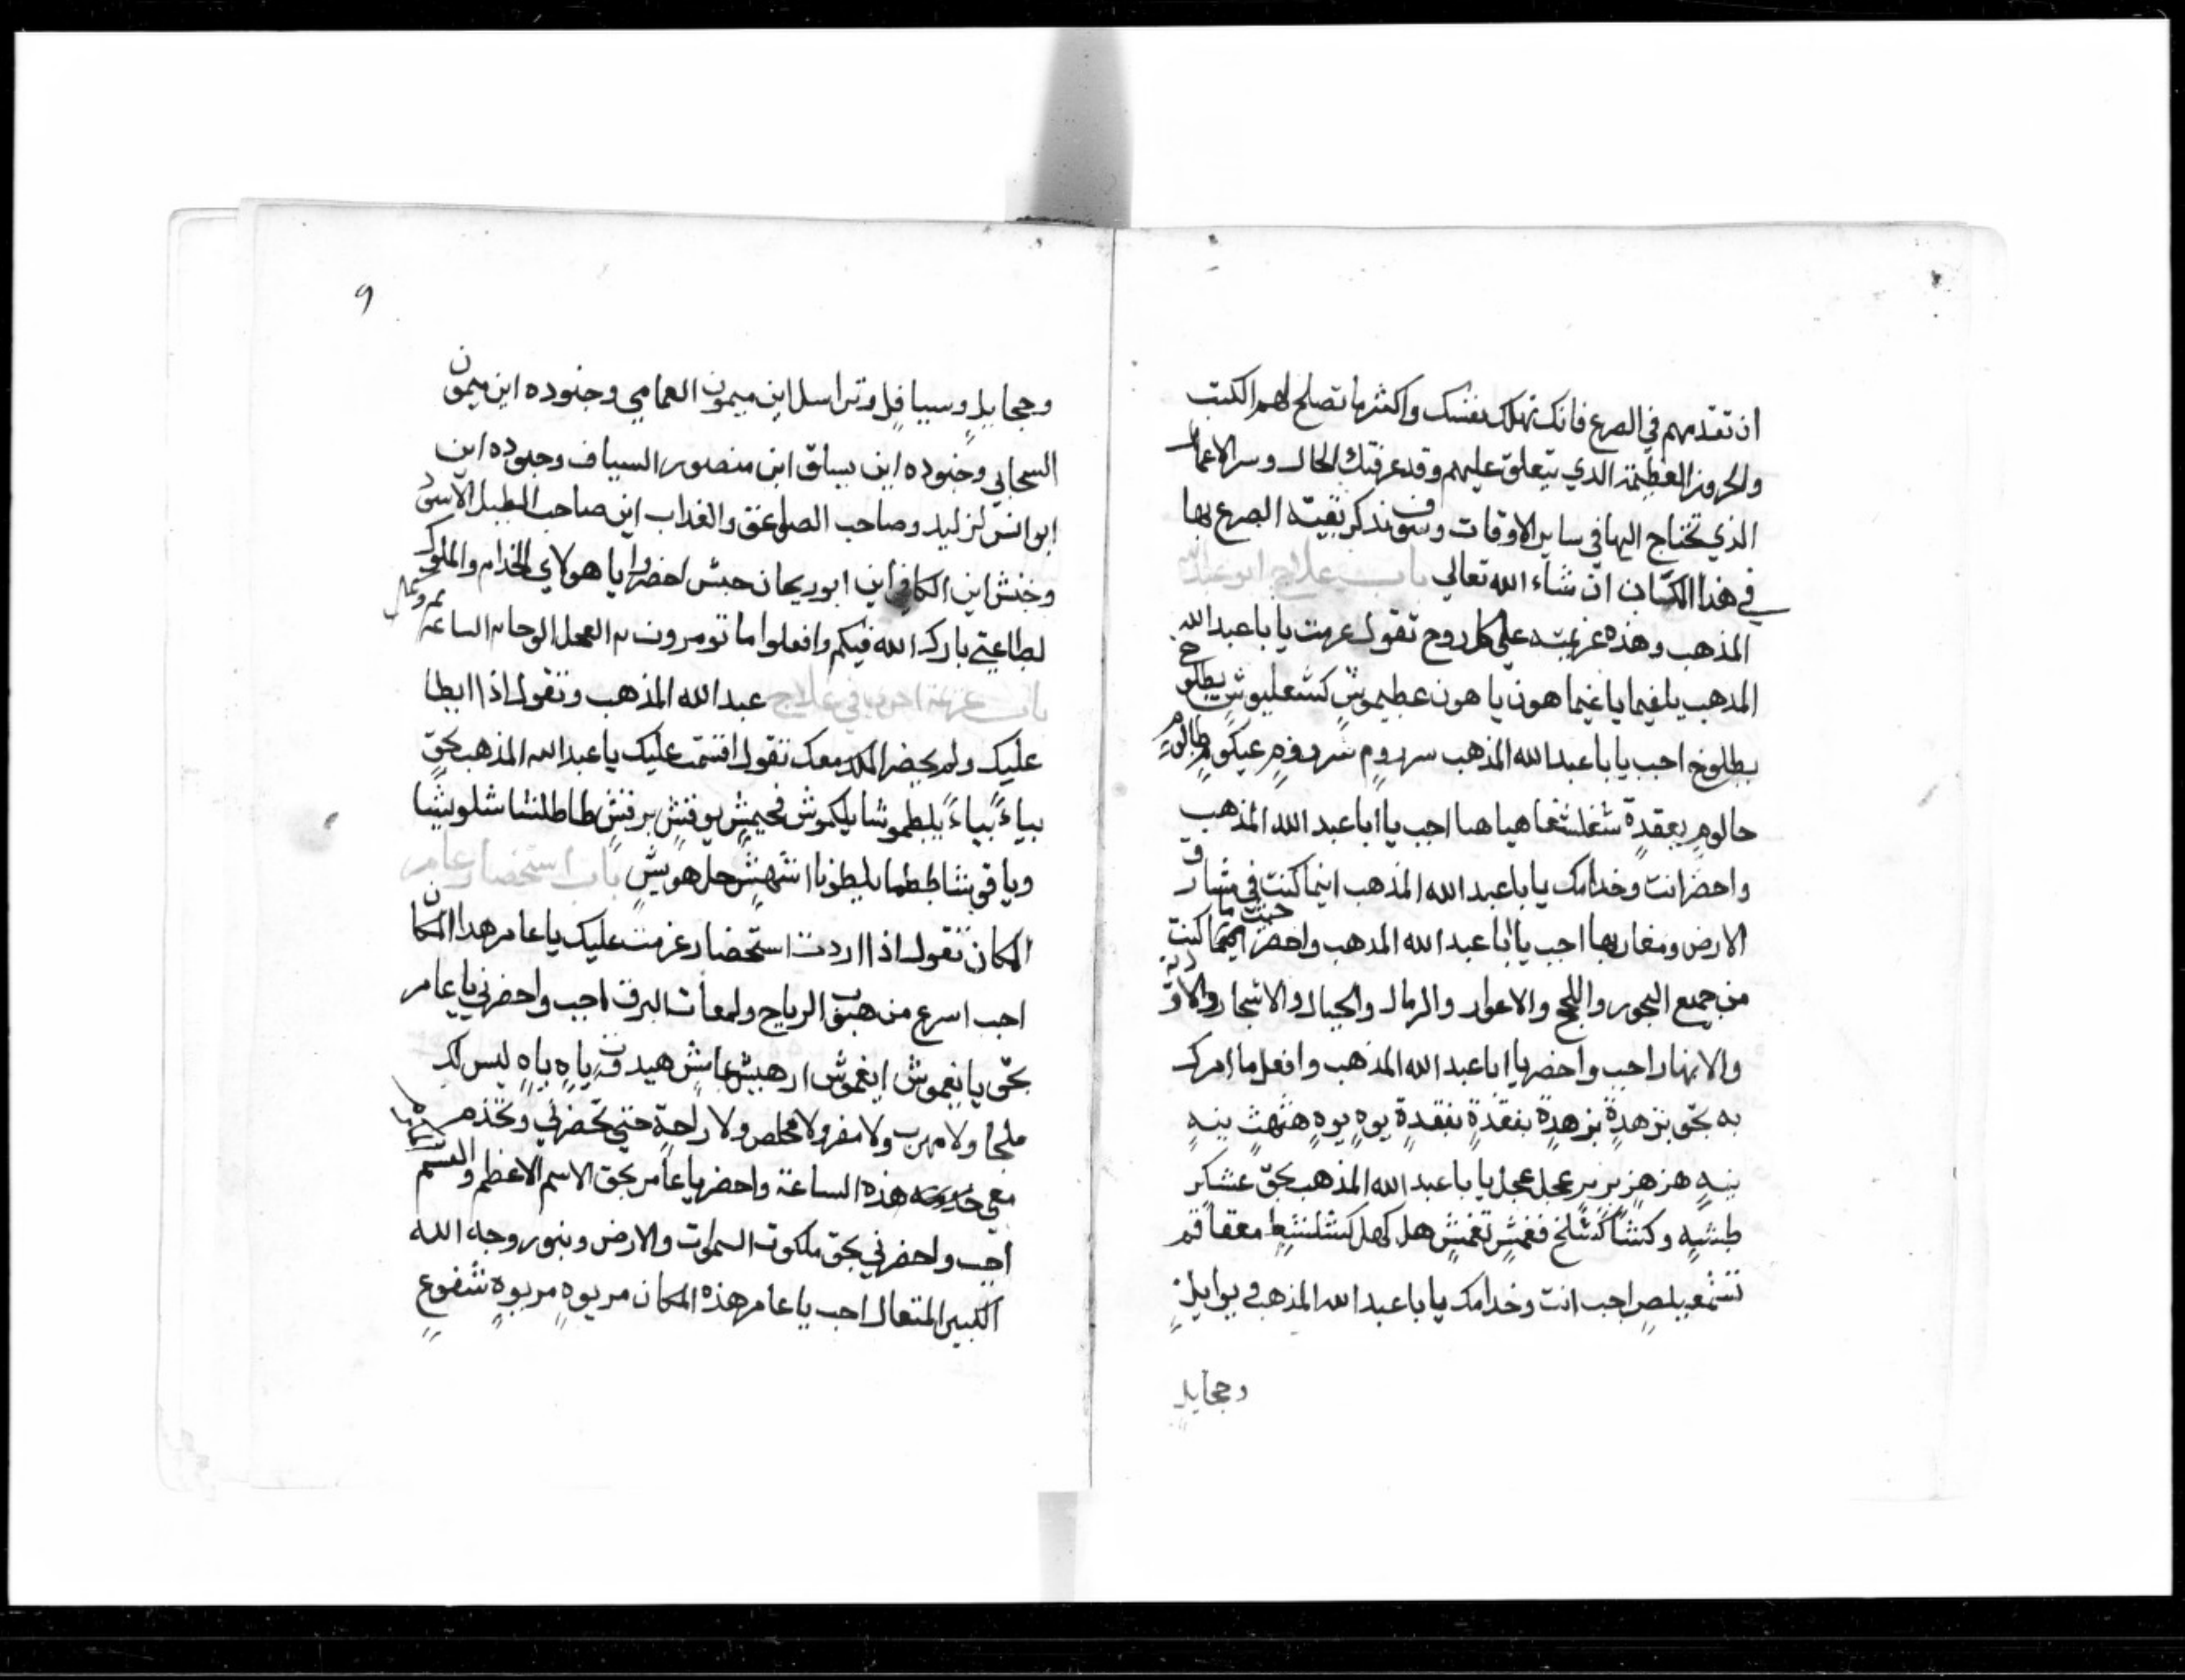 ان تقدمهم في الصرع فانك تهلك نفسك واكثرها تصلح لهم الكتب
والحروز العظيمة الذي يتعلق عليهم وقد عرفتك الحال وسر الاعمال
الذي تحتاج اليها في ساير الاوقات وسوف نذكر بقية الصرع بها
في هذا الكتاب ان شاء الله تعالي باب علاج ابو عبد الله
المذهب وهذه عزيمته علي كل روح تقول عزمت يا با عبد الله
المذهب يا هون يا هون عطيموش كشعليوش بطلوخ
بطلوخ اجب يا با عبد الله المذهب سروم
حالوم بعقدة هيا هيا اجب يا ابا عبد الله المذهب
واحضر انت وخدامك يا با عبد الله المذهب اينما كنت في مشارق
الارض ومغاربها اجب يا ابا عبد الله المذهب واحضر حيث ما كنت
من جميع البحور واللجج والاغوار والرمال والجبال والاشجار والاودية
والانهار اجب واحضر يا ابا عبد الله المذهب وافعل ما امرك
به بحق بزهدة بزهدة بفقدة بفقدة يوه يوه هثهث بيه
بيه هز هز بر بر عجل عجل يا با عبد الله المذهب بحق عشاكر
طشيه وكشا كشلخ ففمش تغمش هل كهل كشلشط
اجب انت وخدامك يا با عبد الله المذهب يوايل
وججايل
9
وججايل وسيافل وتراسل اين ميمون الغمامي وجنوده اين ميمون
السحابي وجنوده اين بساق اين منصور السياف وجنوده اين
ابوانس وصاحب الصواعق والعذاب اين صاحب الطبل الاسود
وخنش اين الكافر اين ابو ريحان حبش احضروا يا هولاي الخدام والملوك
لطاعتي بارك الله فيكم وافعلوا ما تومرون به العجل الوحا الساعه
باب عزيمة اخري في علاج عبد الله المذهب وتقول اذا ابطا
عليك ولم يحضر الملك معك تقول اقسمت عليك يا عبد الله المذهب بحق
بياء بياء بلطموشا يلكموش فحيمش يوقش برقش طاطلشا شلويشا
باب استحضار عامر
المكان تقول اذا اردت استحضار عزمت عليك يا عامر هذا المكان
اجب اسرع من هبوب الرياح ولمعات البرق اجب واحضرني يا عامر
بحق يا نعموش ياه ياه ليس لك
ملجا ولا مهرب ولا مفر ولا مخلص ولا راحة حتي تحضرني وتخدم
معي هذه الساعة واحضر يا عامر بحق الاسم الاعظم
اجب واحضرني بحق ملكوت السموات والارض وبنور وجه الله
الكبير المتعال اجب يا عامر هذه المكان مربوه مربوه شفوع